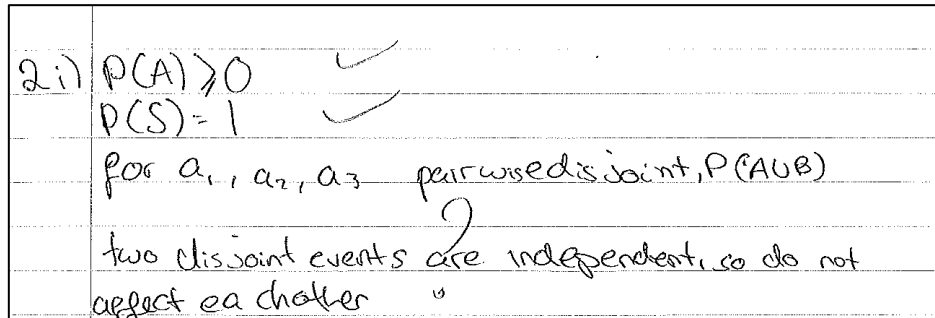 2i) P(A) ⩾ 0 ✓
P(S) = 1 ✓
for a₁, a₂, a₃ pairwise disjoint, P(AUB)
?
two disjoint events are independent, so do not
affect ea chother